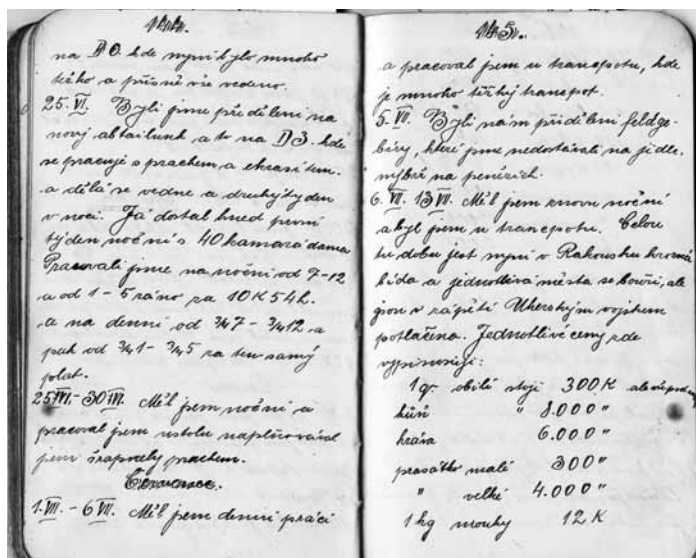 144.
na D0. kde nyní bylo mnoho
těžko a přísně vše vedeno.
25. VI. Byli jsme přiděleni na
nový abtailunk a to na D3. kde
se pracuje s prachem a ekrasitem.
a dělá se vedne a druhý tyden
v noci. Já dostal hned první
týden noční s 40 kamarádama
Pracovali jsme na noční od 7-12
a od 1-5 ráno za 10K 54h.
a na denní od ¾7 - ¾12 a
pak od ¾1 - ¾5 za ten samý
plat.
25 VI - 30 VI. Měl jsem noční a
pracoval jsem ustolu naplňovával
jsem šrapnely prachem.
Červenec.
1. VII. - 6 VII. Měl jsem denní práci
145.
a pracoval jsem u transpotu, kde
je mnoho těžký transpot.
5. VII. Byli nám přiděleni feldge-
bíry, které jsme nedostávali na jídle.
nýbrž na penězích.
6. VII. 13 VII. Měl jsem znovu noční
a byl jsem u transpotu. Celou
tu dobu jest nyní v Rakousku hrozná
bída a jednotlivá města se bouří, ale
jsou v zápětí Uherským vojskem
potlačena. Jednotlivé ceny zde
vypisuji:
1 q obilí stojí 300 K
kůň " 8.000"
kráva 6.000"
prasátko malé 300"
" velké 4.000"
1 kg mouky 12 K